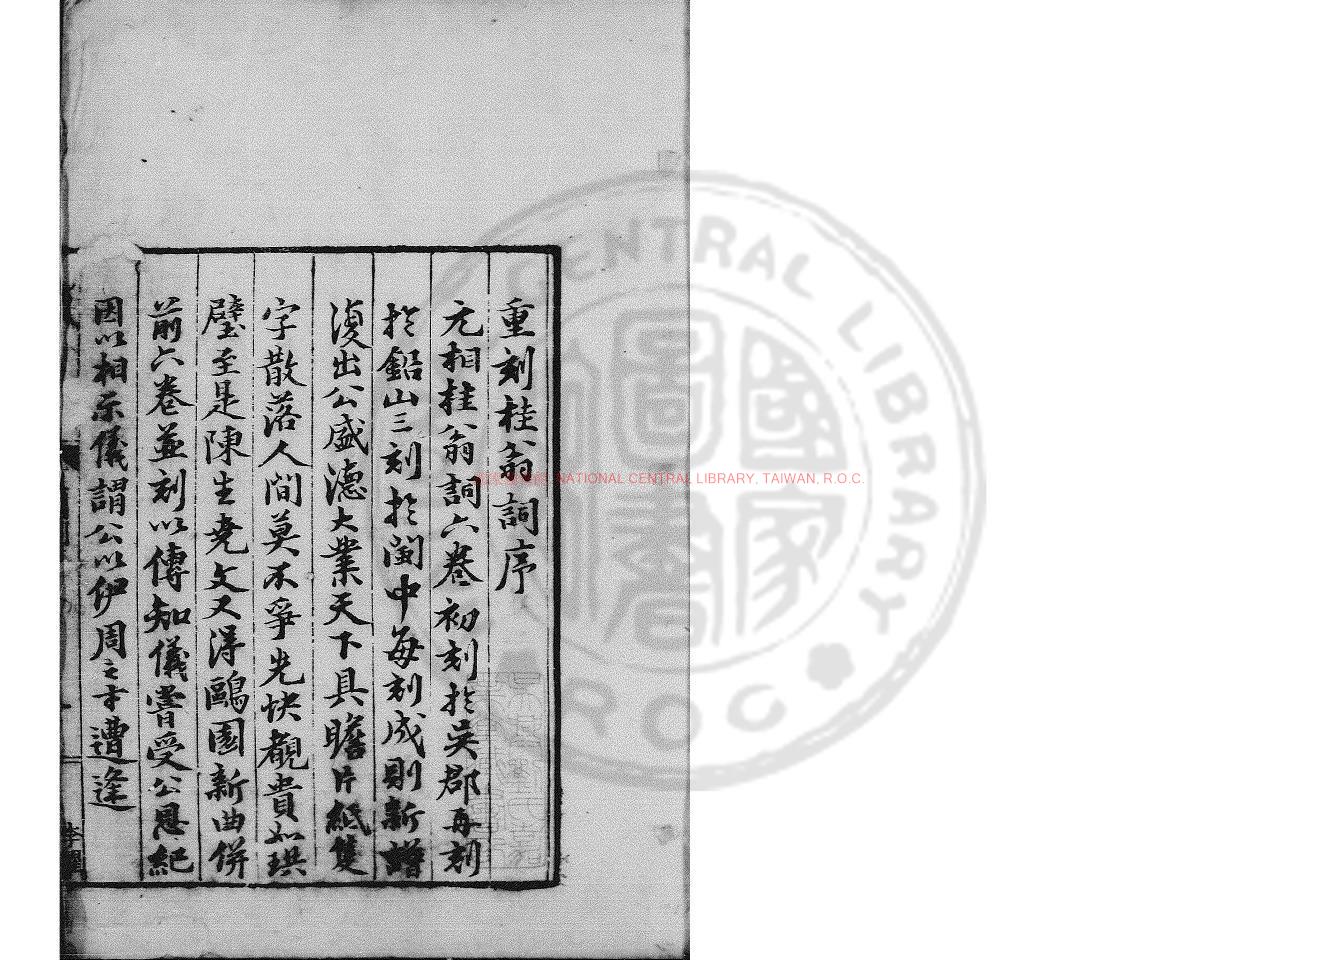 重刻桂翁詞序
元相桂翁詞六卷初刻於吳郡再刻
於鉛山三刻於閩中每刻成則新增
復出公盛德大業天下具瞻片紙隻
字散落人間莫不爭先快覩貴如珙
璧至是陳生堯文又得鷗園新曲併
前六卷並刻以傳知儀嘗受公恩紀
因以相示儀謂公以伊周之才遭逢
NATIONAL CENTRAL LIBRARY, TAIWAN, R.O.C.
CENTRAL LIBRARY
R O C
國家圖書